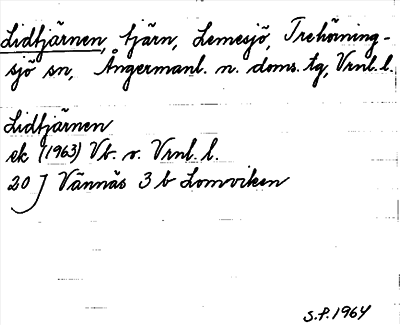 Lidtjärnen, tjärn, Lemesjö, Trehörning-
sjö sn, Ångermanl. n. doms. tg, Vrnl. l.
Lidtjärnen
ek (1963) Vb. o. Vrnl. l.
20 J Vännäs 3 b Lomviken
S.P. 1964